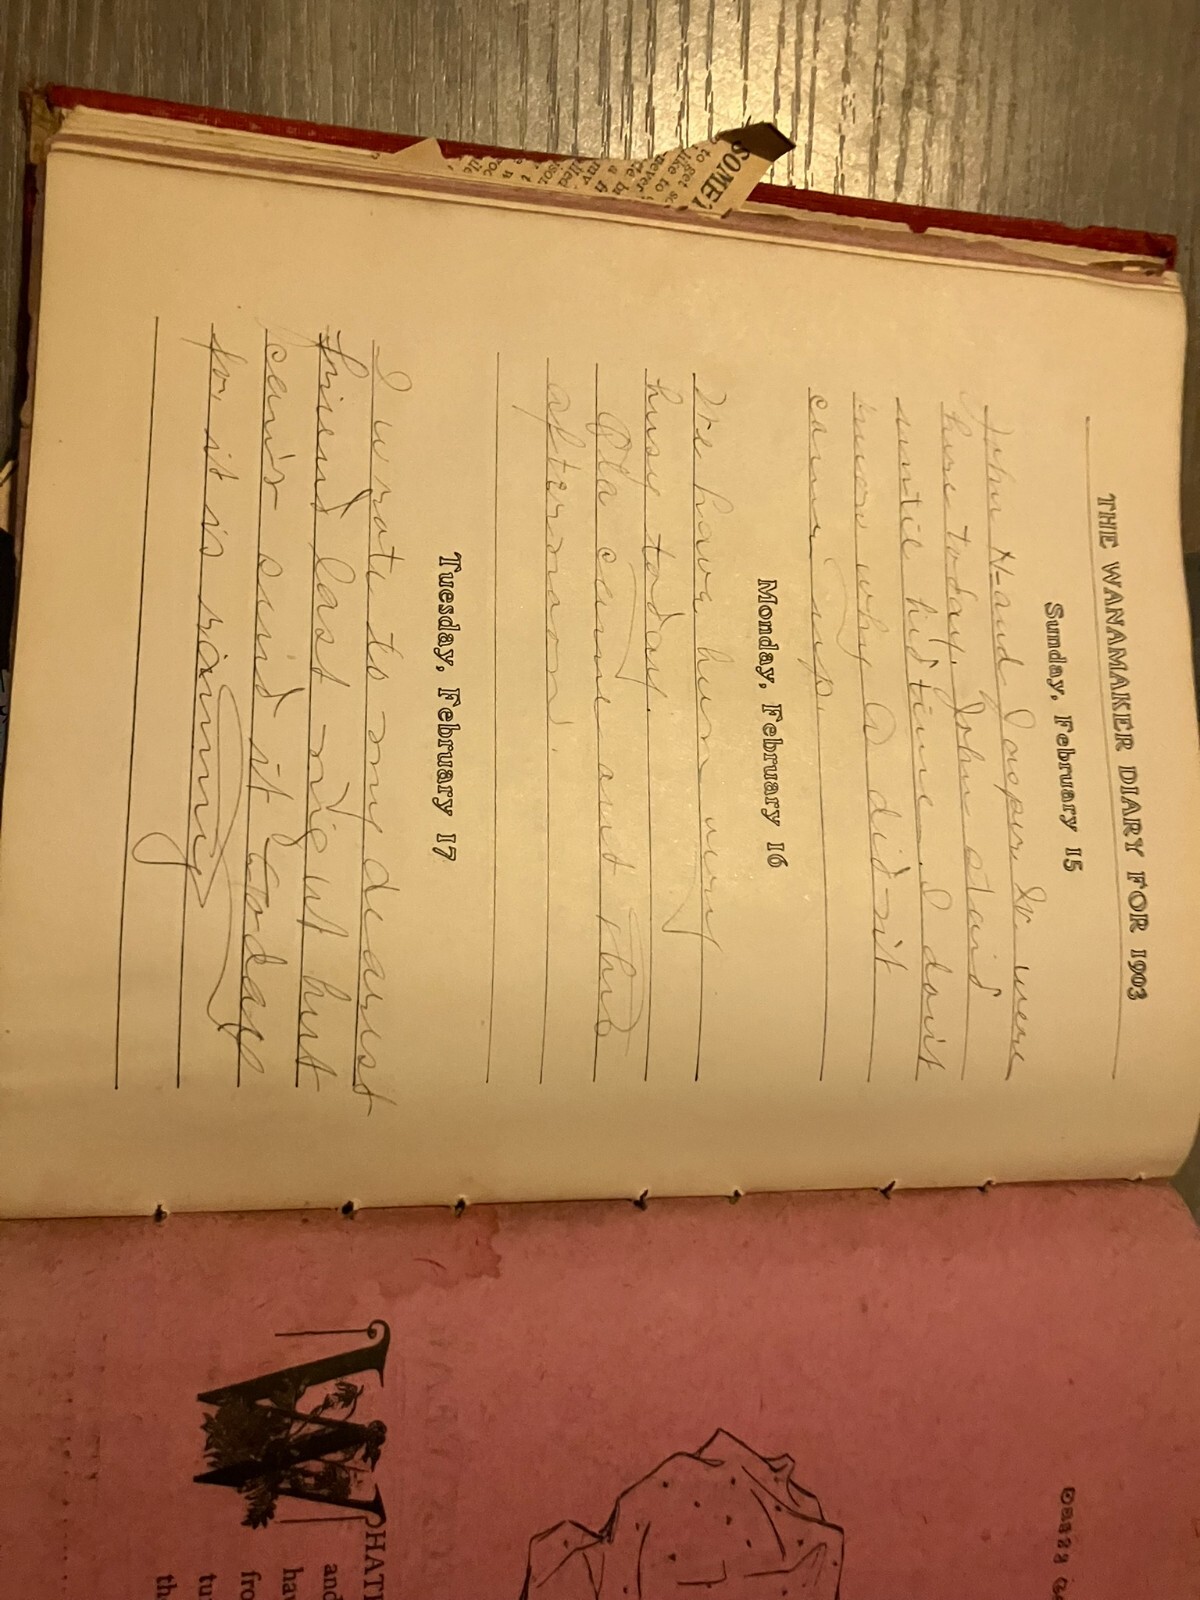 THE WANAMAKER DIARY FOR 1903
Sunday, February 15
John N. and Jasper Sr. were
here today. John staid
until bedtime. I don't
know why A didn't
come up.
Monday, February 16
We have been very
busy today.
Ola came out this
afternoon.
Tuesday, February 17
I wrote to my dearest
friend last night but
can't send it today
for it is raining
SOME
to get so
like to
never
HATE
and
hav
fro
tu
th